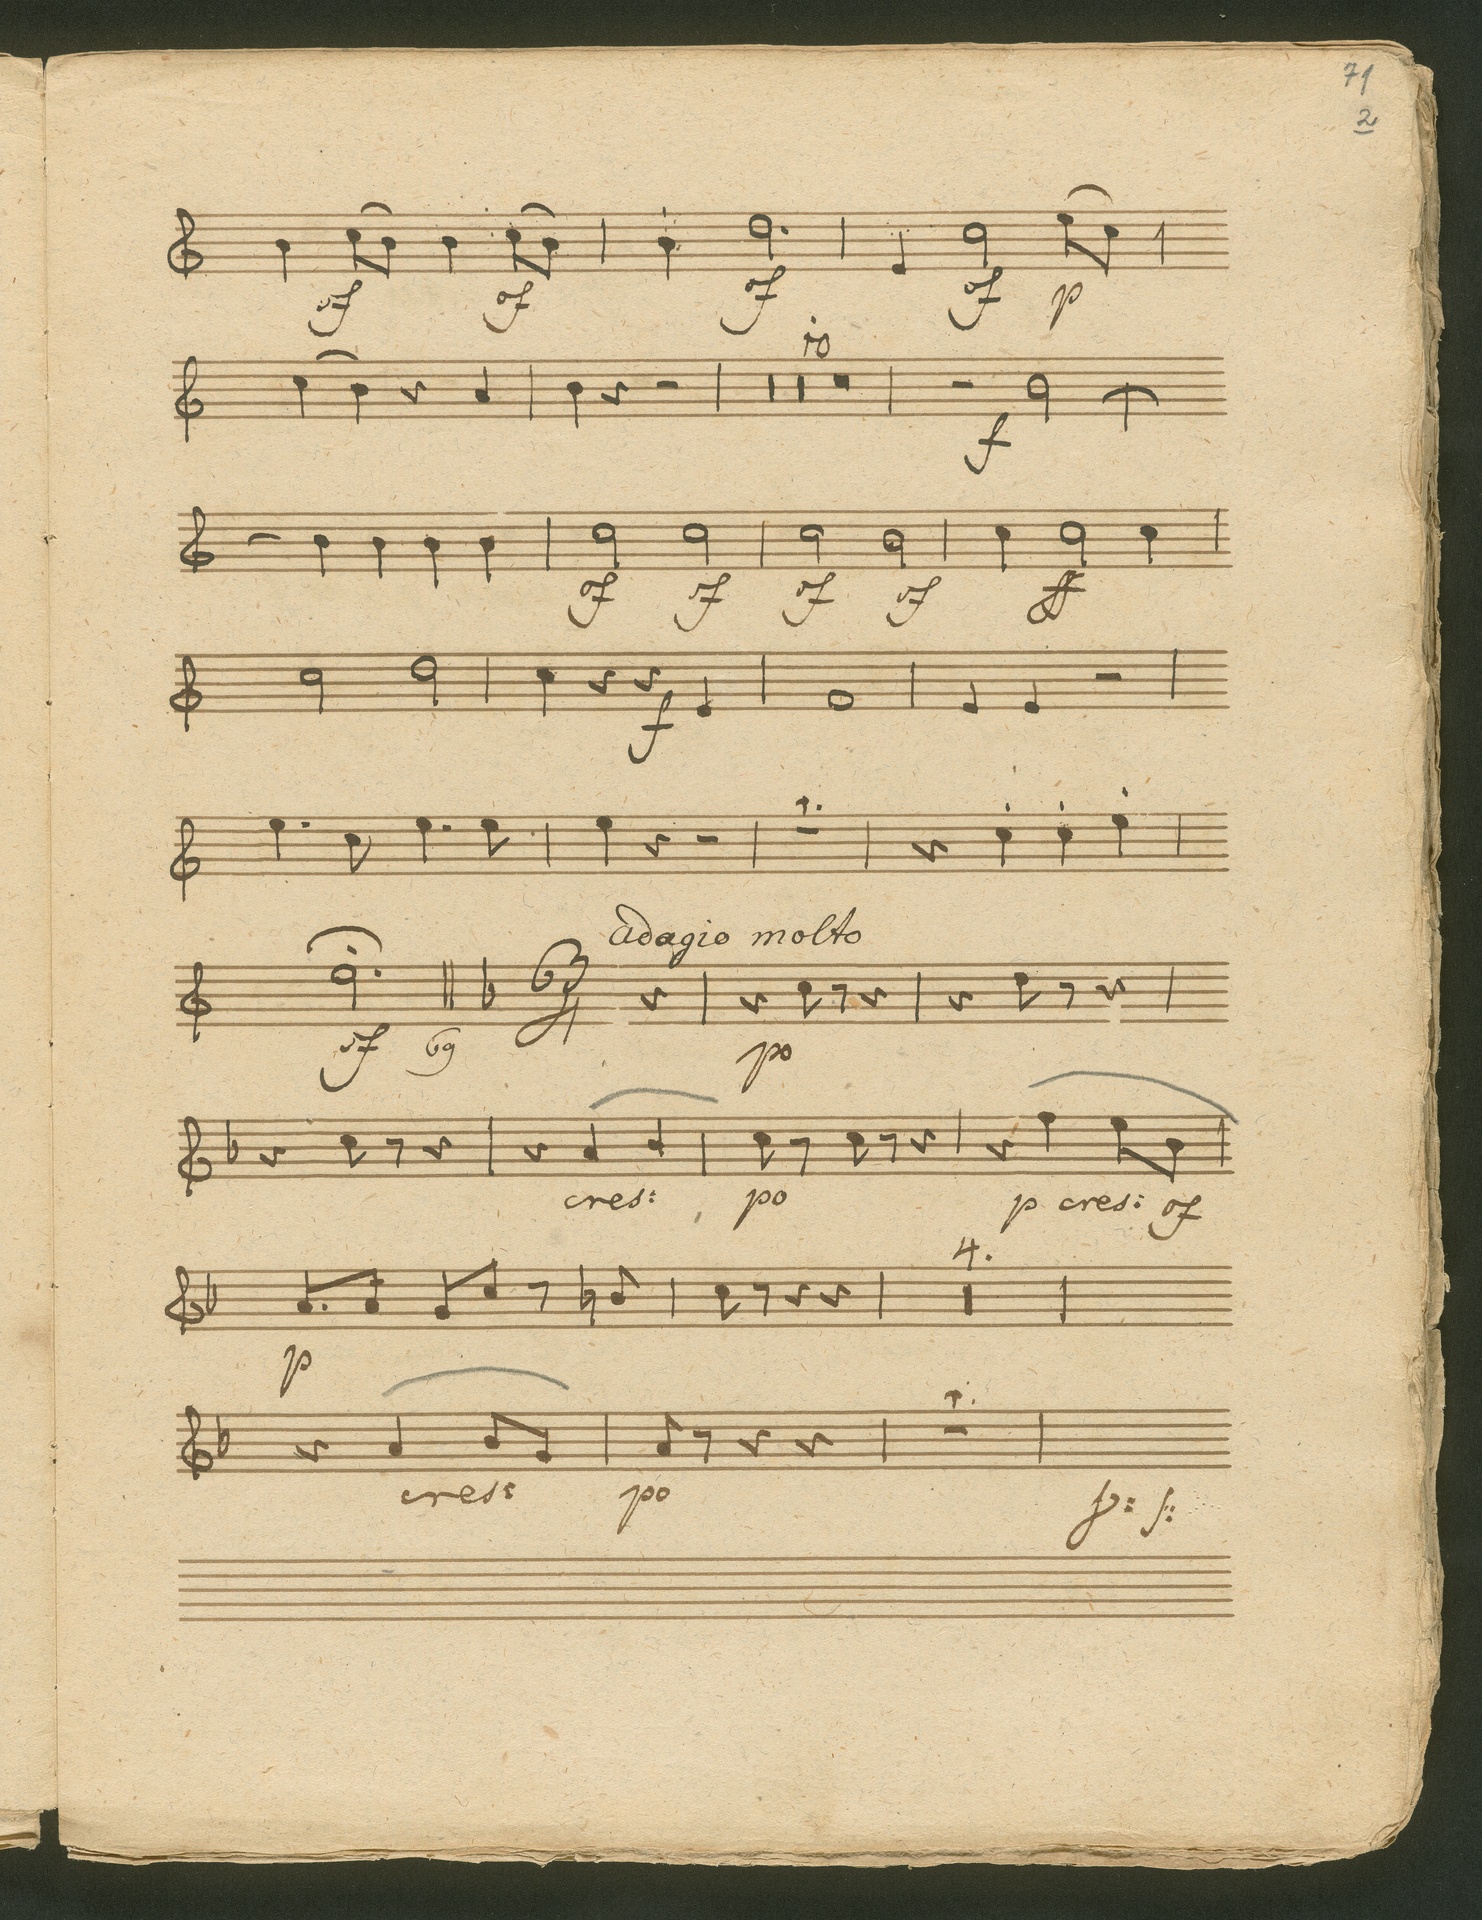 71
2
sf sf sf sf p
10
f
sf sf sf sf ff
f
1.
adagio molto
sf po
cres: po p cres: sf
4.
p
1.
cres: po